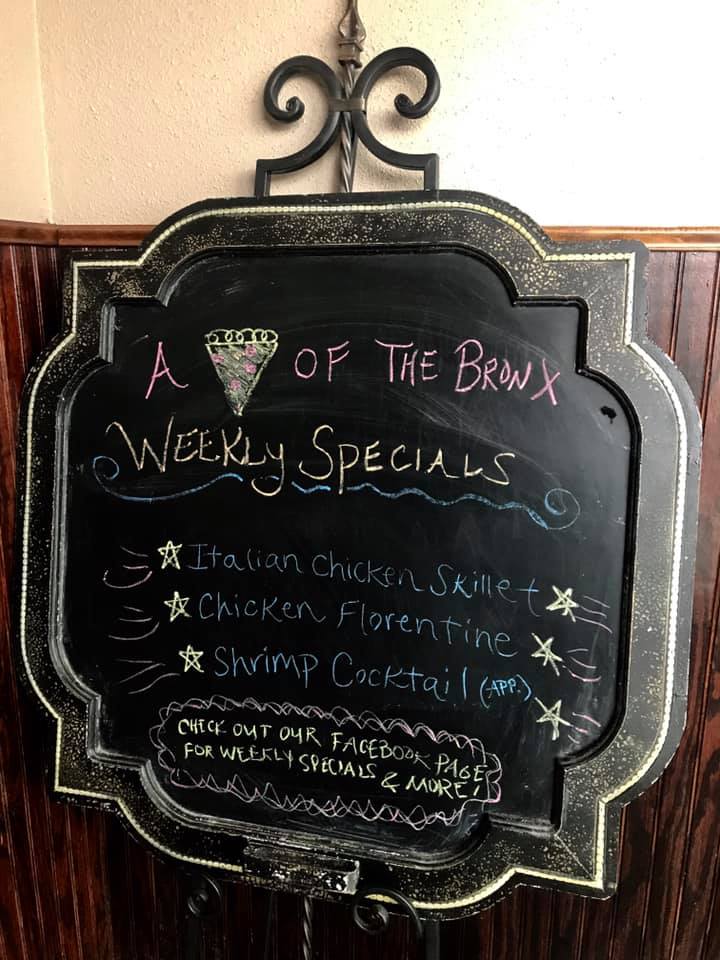 A OF THE BRONX
WEEKLY SPECIALS
Italian Chicken Skillet
Chicken Florentine
Shrimp Cocktail (APP.)
CHECK OUT OUR FACEBOOK PAGE
FOR WEEKLY SPECIALS & MORE!